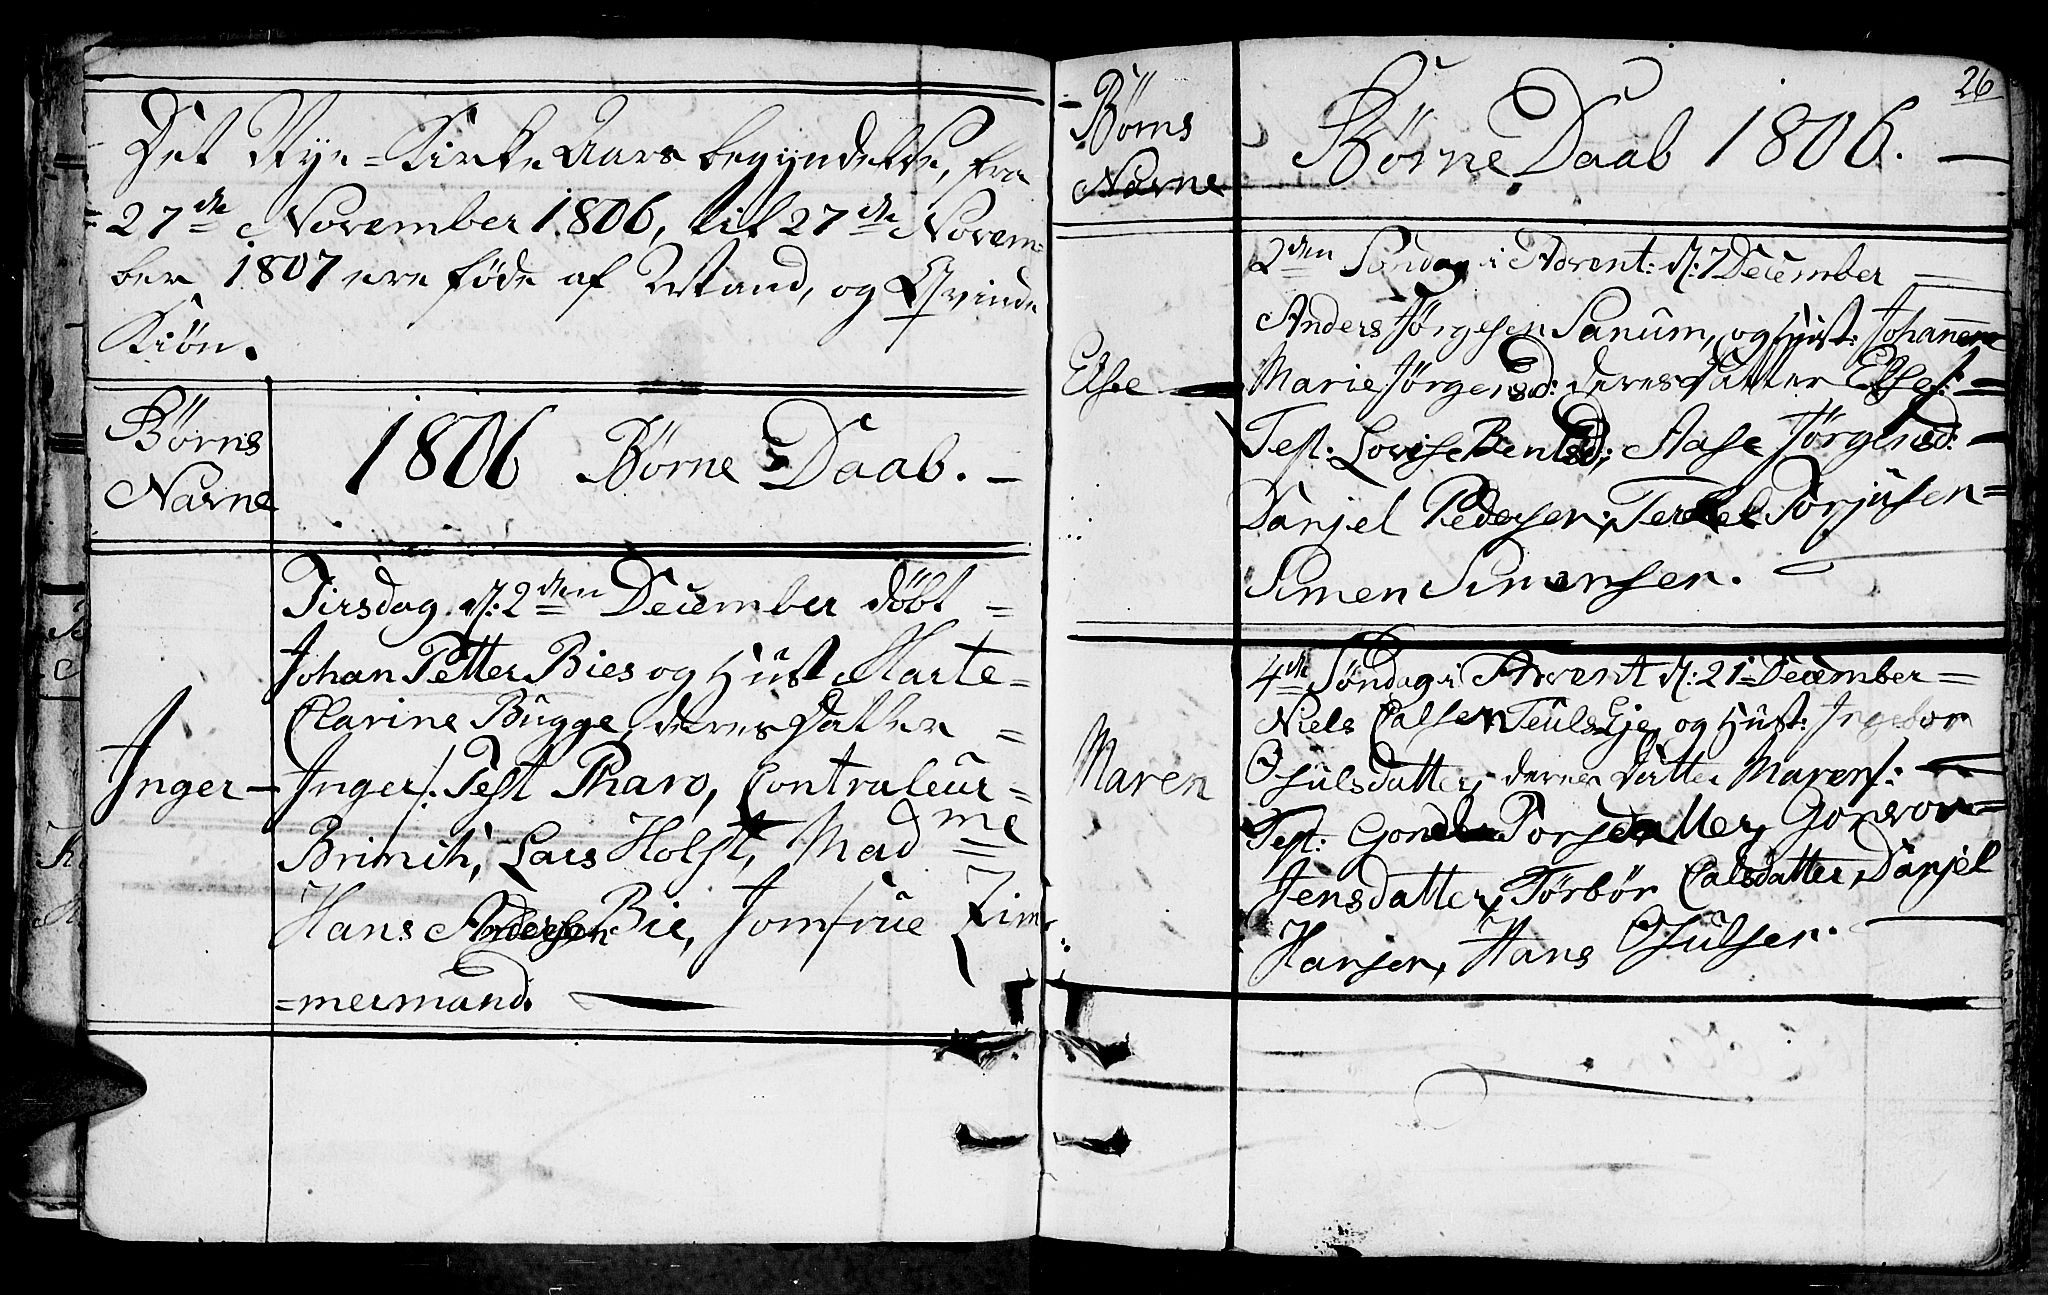 Det Nye=Kirke Aars begyndelse, fra
27de November 1806, til 27de Novem=
ber 1807 ere føde af Mand, og Qvinde
Kiøn.
Børns
Navne
1806 Børne Daab.
Tirsdag d: 2den December döbt =
Johan Petter Bies og Hust Marte=
Clarine Bugge, deres Datter =
Inger — Inger/: Test Pharo, Contraleur=
Brinch, Lars Holst, Mad me =
Hans Andersen Bie, Jomfrue Zim=
=mermand.
26
Børns
Navne
Børne Daab 1806. —
2den Søndag i Advent: d: 7 December =
Anders Jørgesen Sanum, og Hust: Johanne
Else — Marie Jørgensd: deres Datter Else/: =
Test: Lovise Bentsd; Aase Jørgensd: =
Danjel Pedersen; Terkel Torjusen =
Simen Simensen.
4de Søndag i Advent d: 21 December =
Niels Calsen og Hust: Ingebor
Maren
Osulsdatter, deres Datter Maren/: =
Test: Torsdatter, Gonvor =
Jensdatter, Torbör Calsdatter, Danjel
Hansen, Hans Osulsen.